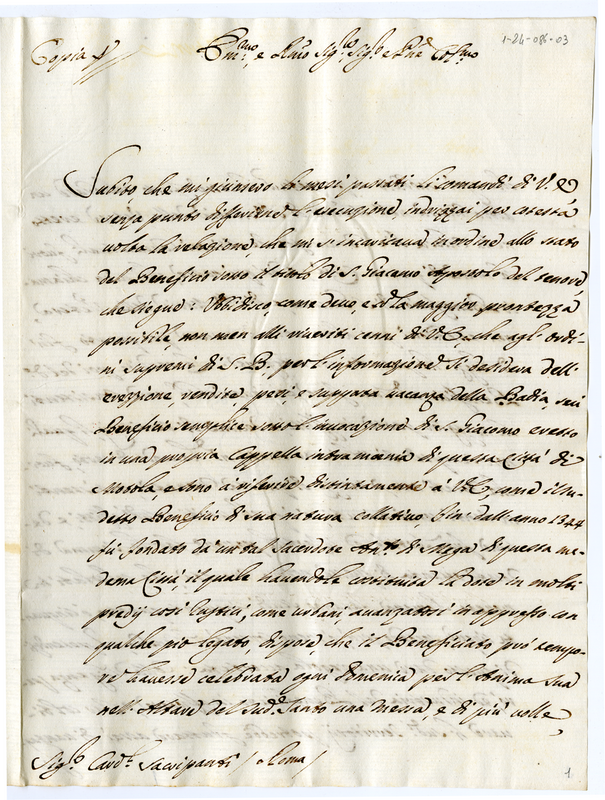 1-24-086-03
Copia
Em.mo, e Rmo Sig.re, Sig.re e Pne Col.mo
Subito che mi giunsero le mesi passati li comandi di V. E
senza punto differirne l'esecuzione indrizzai per costestà
volta la relazione, che mi s'incaricava in ordine allo stato
del Beneficio sotto il titolo di S. Giacomo Apostolo del tenore
che siegue: Ubidisco, come devo, e cō la maggior prontezza
possibile, non men alli riveriti cenni di V.E., che agl'ordi-
ni supremi di S. B. per l'informazione si desidera dell'
erezzione, rendite pesi, e supposta vacanza della Badia, seu
Beneficio semplice sotto l'invocazione di S. Giacomo eretto
in una propria Cappella intra mœnia di questa Città di
Motola, e sono a riferire distintamente à V.E., come il su-
detto Beneficio di sua natura collativo fin dall'anno 1344
fù fondato da un tal Sacerdote Ant.o di Mega di questa me-
dema Città, il quale havendole costituita la dote in molti
predij così rustici, come urbani, avanzatosi in appresso con
qualche pio legato, dispose, che il Beneficiato prō tempo-
re havesse celebrata ogni domenica per l'Anima sua
nell'Altare del sud.o Santo una messa, e di più volle,
Sig.r Card.l Sacripanti / Roma /
1